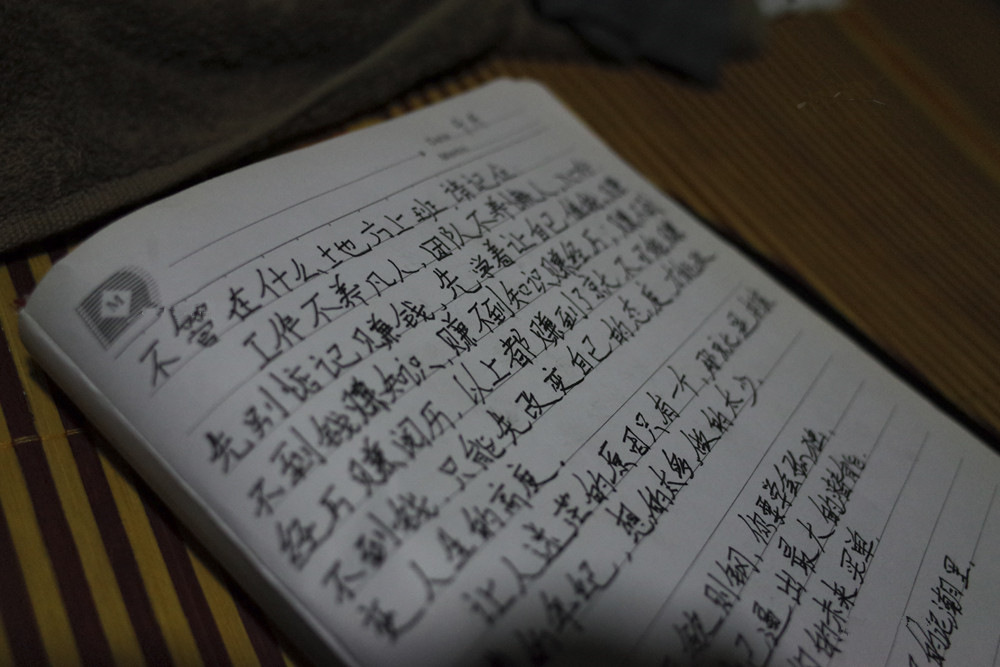 M
不管在什么地方上班,请记住
工作不养凡人,团队不养懒人
先别惦记赚钱,先学着让自己值钱,赚
不到钱赚知识,赚不到知识赚经历,赚不到
经历赚阅历,以上都赚到了就不可能赚
不到钱,只能先改变自己的态度,才能改
变人生的高度.
让人迷茫的原因只有一个,那就是
的年纪,想的太多做的太少.
做别纲,你要学会
己逼出最大的潜能.
的未来买单.
的泥潮里.